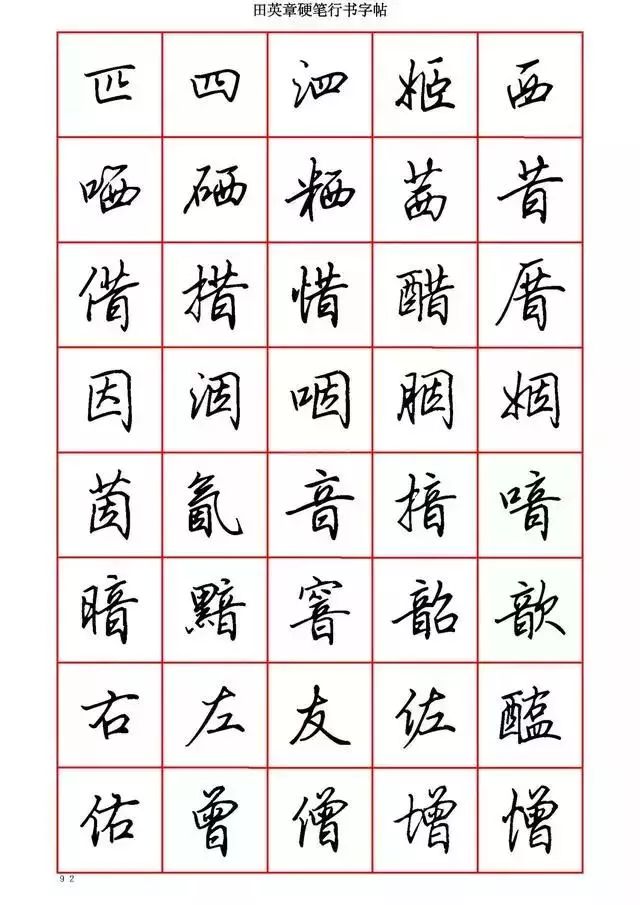 田英章硬笔行书字帖
匹 四 泗 姬 西
哂 硒 粞 茜 昔
借 措 惜 醋 厝
因 洇 咽 胭 姻
茵 氤 音 揞 喑
暗 黯 窨 韶 歆
右 左 友 佐 醢
佑 曾 僧 增 憎
92